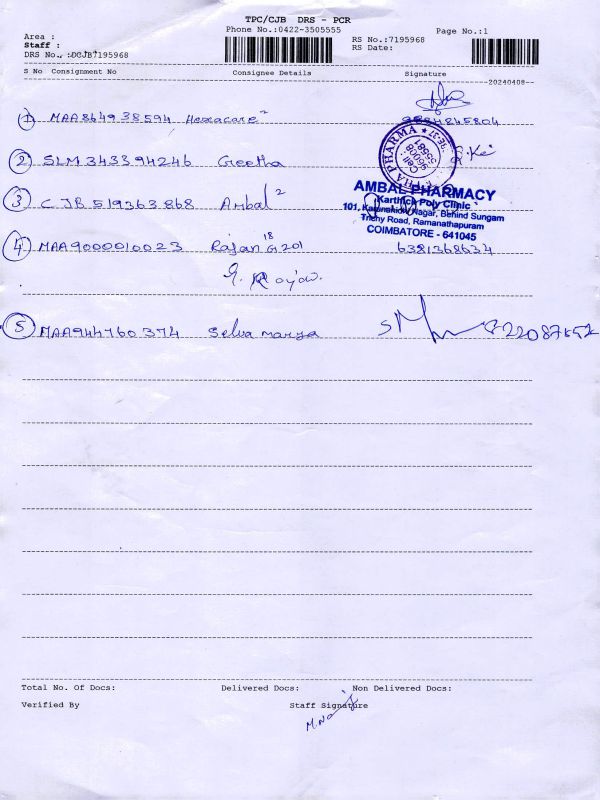 TPC/CJB DRS - PCR
Phone No.:0422-3505555
Page No.:1
Area :
RS No.:7195968
Staff :
RS Date:
DRS No.,:DCJB7195968
S No Consignment No Consignee Details Signature
20240408
1 MAA864938594 Hexacare 2 9884245804
2 SLM343394246 Geetha
3 CJB519363868 Ambal 2
AMBAL PHARMACY
Karthick Poly Clinic
101, Karunanidhi Nagar, Behind Sungam
Trichy Road, Ramanathapuram
COIMBATORE - 641045
4 MAA9000010023 Rajan G 18 201 6381368634
5 MAA944760374
Total No. Of Docs: Delivered Docs: Non Delivered Docs:
Verified By Staff Signature